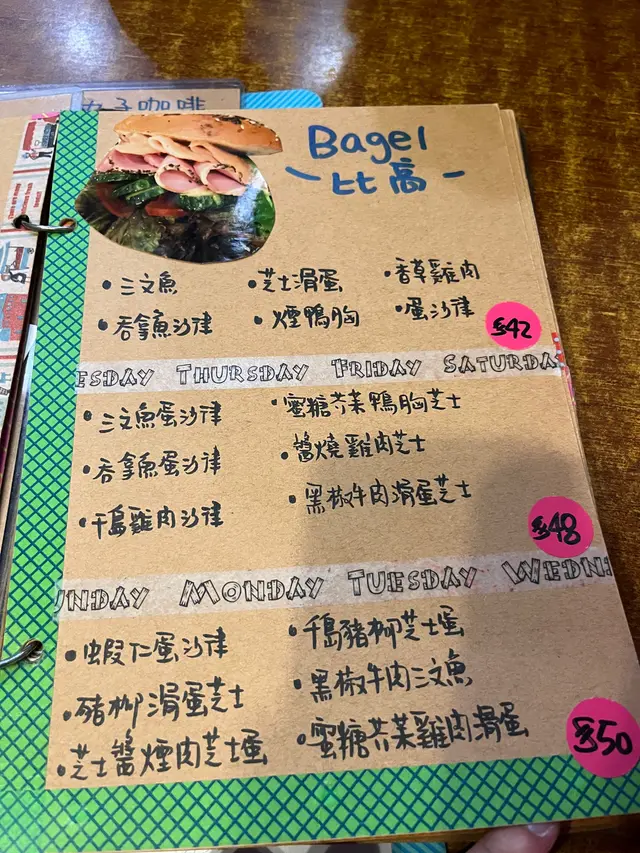 咖啡
Bagel
比高
• 三文魚 • 芝士滑蛋 • 香草雞肉
• 吞拿魚沙律 • 煙鴨胸 • 蛋沙律
$42
ESDAY THURSDAY FRIDAY SATURDA
• 三文魚蛋沙律 • 蜜糖芥茉鴨胸芝士
• 吞拿魚蛋沙律 • 醬燒雞肉芝士
• 千島雞肉沙律 • 黑椒牛肉滑蛋芝士
$48
UNDAY MONDAY TUESDAY WEDN
• 蝦仁蛋沙律 • 千島豬柳芝士蛋
• 豬柳滑蛋芝士 • 黑椒牛肉三文魚
• 芝士醬煙肉芝士蛋 • 蜜糖芥茉雞肉滑蛋
$50